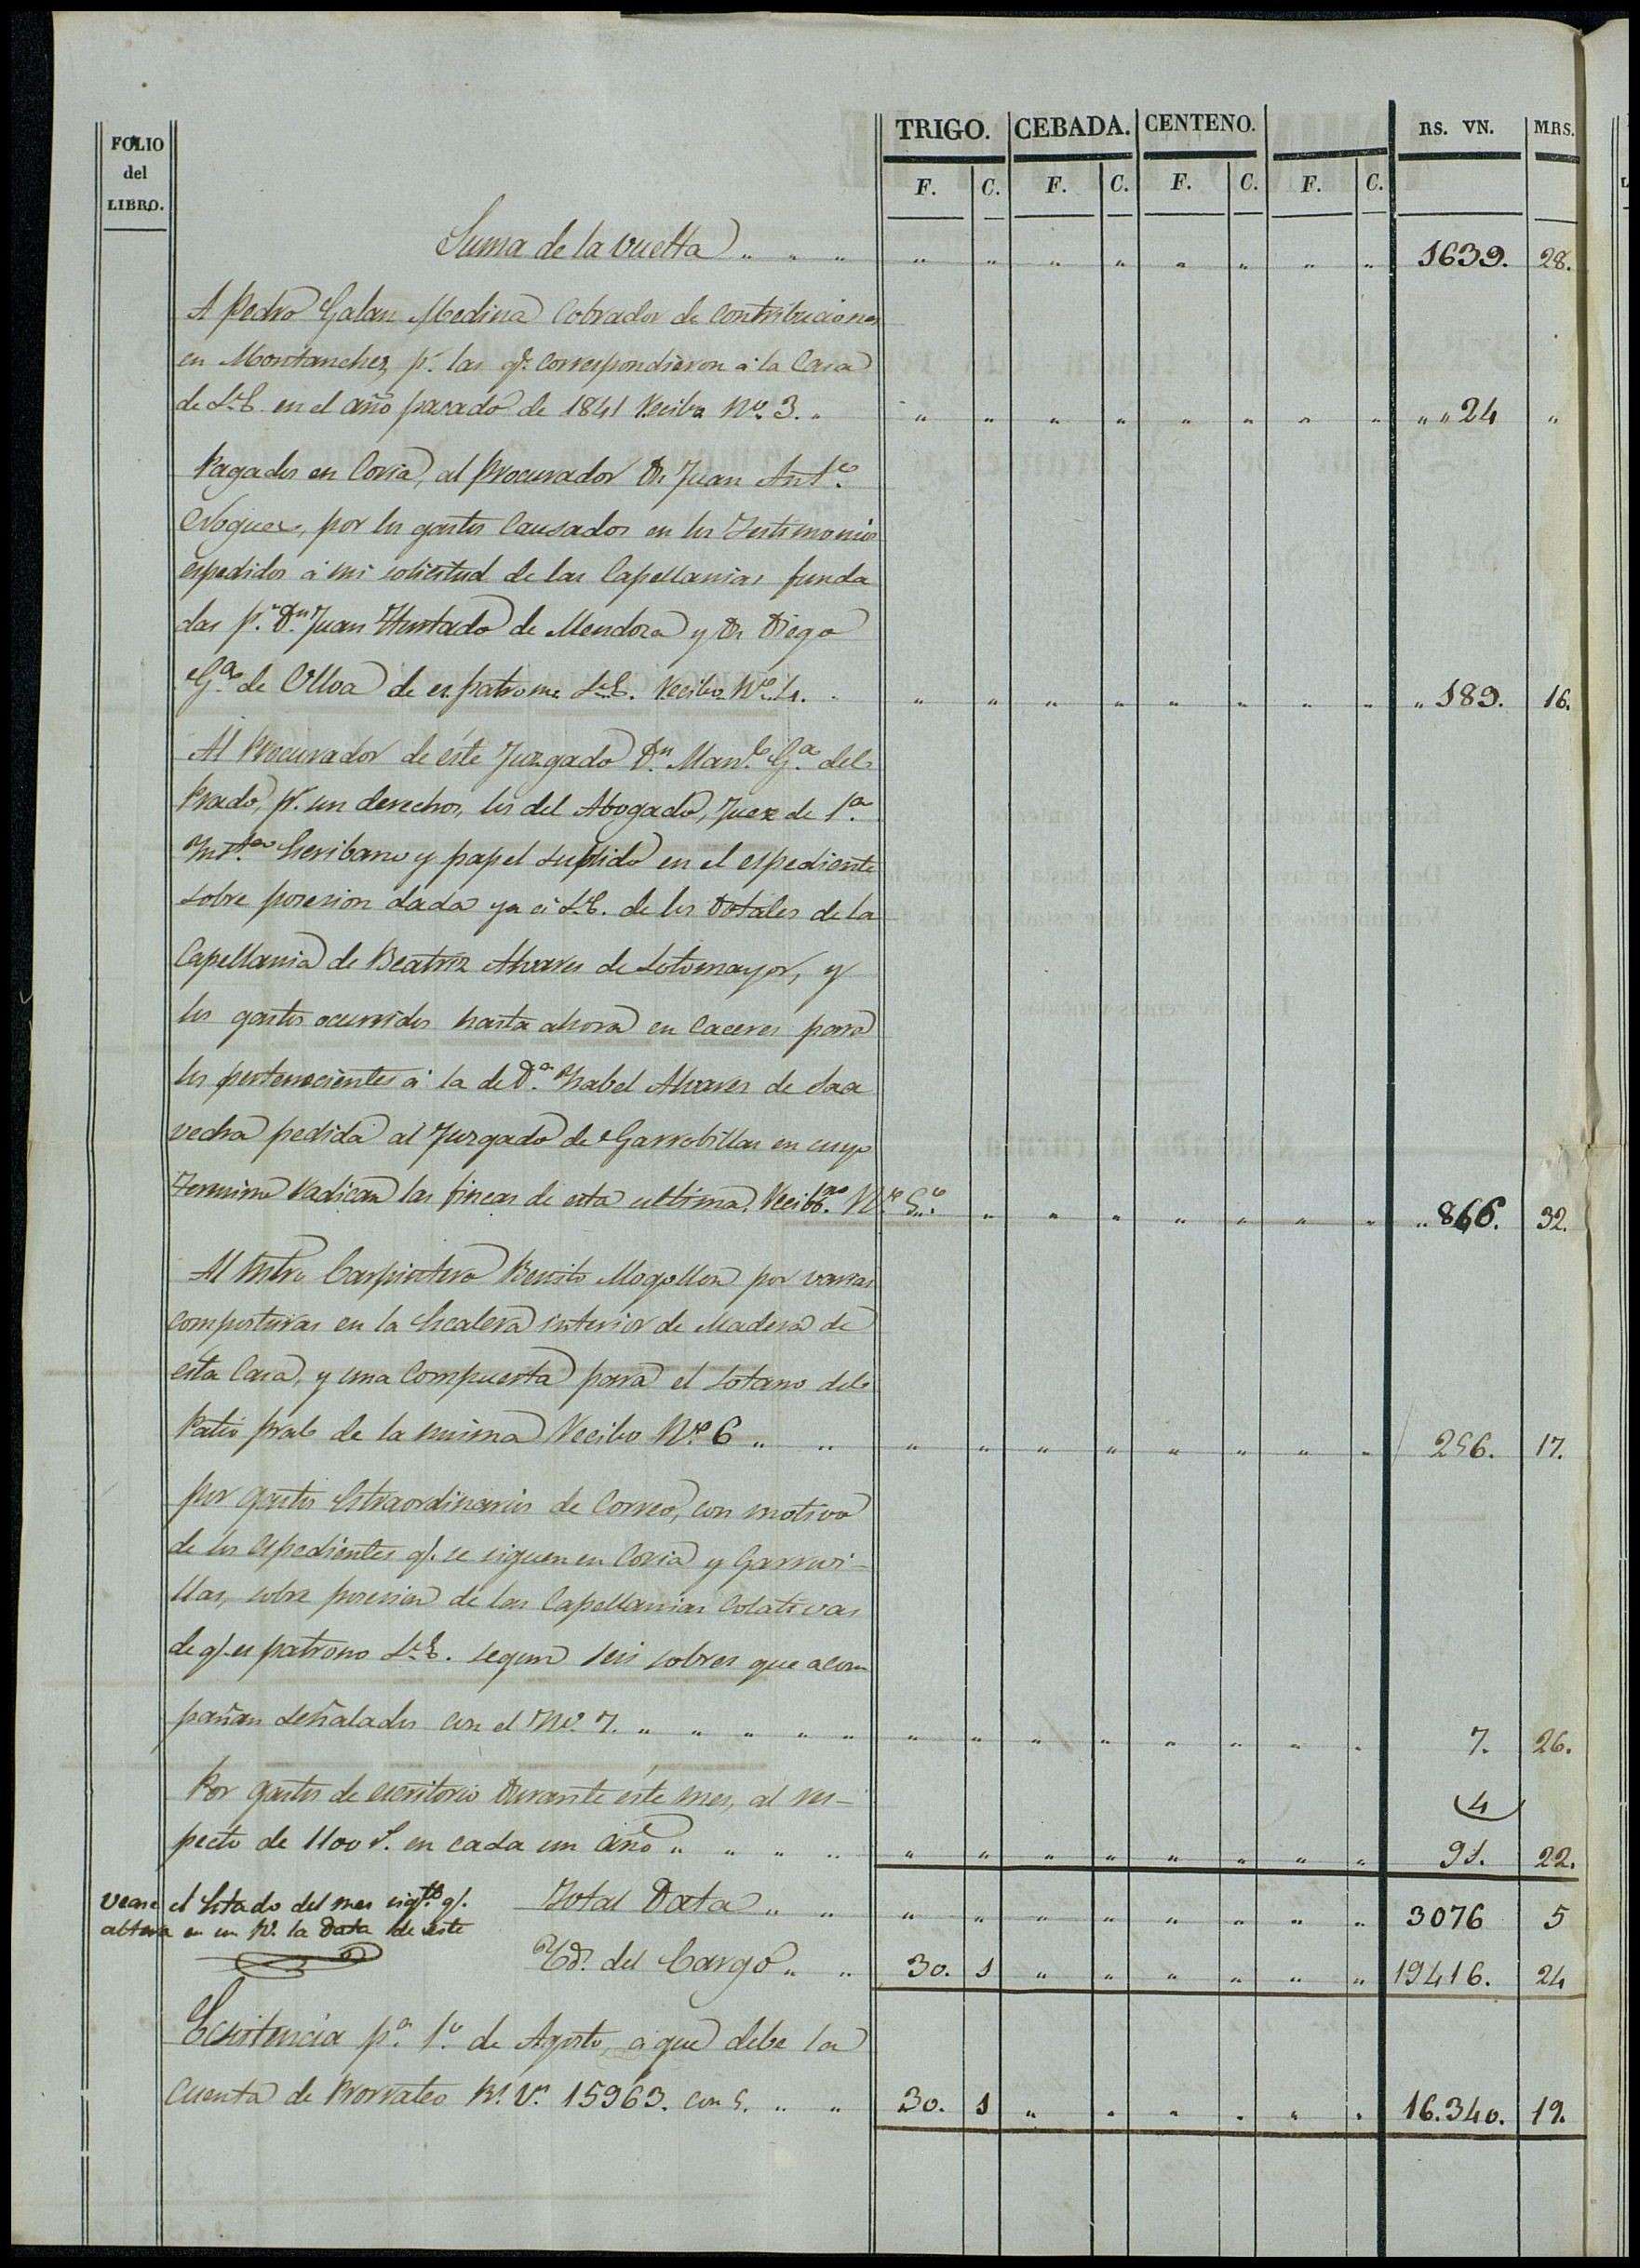 FOLIO del LIBRO. TRIGO. CEBADA. CENTENO. RS. VN. MRS.
F. C. F. C. F. C. F. C.
Suma de la vuelta " " " " " " " " " " " 1639. 28.
A Pedro Galan Medina Cobrador de Contribuciones
en Montanchez, pr. las qe. correspondieron á la Casa
de S.E. en el año pasado de 1841 Recibo No. 3. " " " " " " " " " " " 24 "
Pagados en Coria, al Procurador Dn Juan Anto.
por los gastos Causados en los Testimonios
espedidos á mi solicitud de las Capellanias funda
das pr. Dn. Juan Hurtado de Mendoza y Dn Diego
Ga. de Ulloa de es patrono S.E. Recibo No. 4. " " " " " " " " " 189. 16.
Al Procurador de éste Juzgado Dn. Manl. Ga. del
Prado, pr. sus derechos, los del Abogado, Juez de 1a.
Insta. Escribano y papel suplido en el espediente
sobre posesion dada ya á S.E. de los Dotales de la
Capellania de Beatriz Alvares de Sotomayor, y
los gastos ocurridos hasta ahora en Caceres para
los pertenecientes á la de Da. Isabel Alvares de Saa
vedra pedida al Juzgado de Garrobillas en cuyo
termino radican las fincas de esta ultima. Recibo. No. 5. " " " " " " " " 866. 32.
Al Mtro Carpintero Benito Mogollon por varias
composturas en la Escalera interior de Madera de
esta Casa, y una Compuerta para el sotano del
Patio pral de la misma Recibo No. 6 " " " " " " " " " " 256. 17.
por gastos Estraordinarios de Correo, con motivo
de los Espedientes q. se siguen en Coria y Garrovi-
llas, sobre posesion de las Capellanias Colativas
de q. es patrono S.E. segun seis sobres que acom
pañan señalados con el No. 7. " " " " " " " " " " " " " 7. 26.
Por gastos de escritorio Durante éste mes, al res-
4
pecto de 1100 r. en cada un año " " " " " " " " " " " " 91. 22.
Total Data " " " " " " " " " " 3076 5
Vease el Estado del mes sigte. q.
altera en un Rl. la Data de este
Yd. del Cargo " " 30. 1 " " " " " " 19416. 24
Ecsistencia pa. 1o. de Agosto, a que debe la
Cuenta de Prorrateo Rs. Vn. 15963. con 5. " " 30. 1 " " " " " " 16.340. 19.